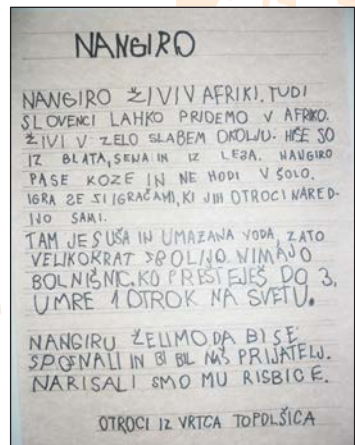 NANGIRO
NANGIRO ŽIVI V AFRIKI. TUDI
SLOVENCI LAHKO PRIDEMO V AFRIKO.
ŽIVI V ZELO SLABEM OKOLJU. HIŠE SO
IZ BLATA, SENA IN IZ LESA. NANGIRO
PASE KOZE IN NE HODI V ŠOLO.
IGRA SE Z IGRAČAMI, KI JIH OTROCI NARED-
IJO SAMI.
TAM JE SUŠA IN UMAZANA VODA, ZATO
VELIKOKRAT ZBOLIJO. NIMAJO
BOLNIŠNIC. KO PREŠTEJEŠ DO 3,
UMRE 1 OTROK NA SVETU.
NANGIRU ŽELIMO DA BI SE
SPOZNALI IN BI BIL NAŠ PRIJATELJ.
NARISALI SMO MU RISBICE.
OTROCI IZ VRTCA TOPOLŠICA